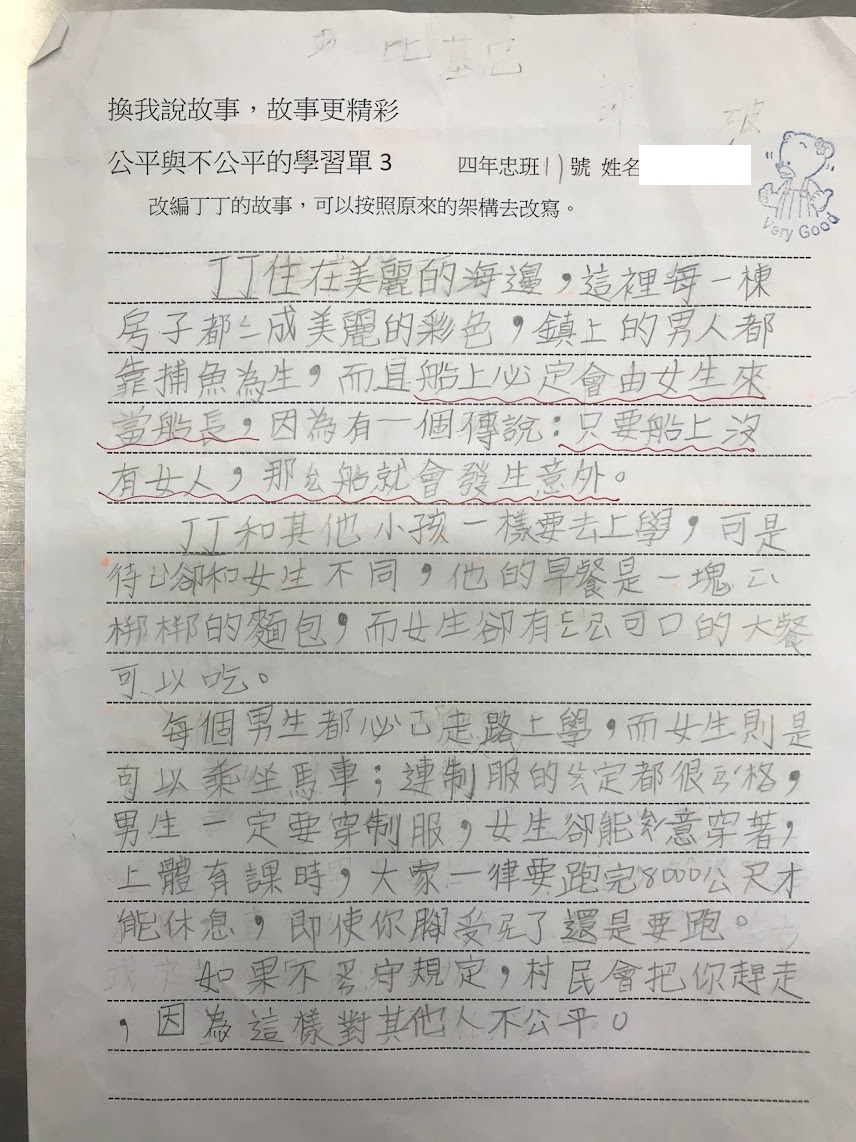 比基尼
換我說故事，故事更精彩
公平與不公平的學習單 3 四年忠班11號 姓名
Very Good
改編丁丁的故事，可以按照原來的架構去改寫。
丁丁住在美麗的海邊，這裡每一棟
房子都成美麗的彩色，鎮上的男人都
靠捕魚為生，而且船上必定會由女生來
當船長，因為有一個傳說：只要船上沒
有女人，那ㄠ船就會發生意外。
丁丁和其他小孩一樣要去上學，可是
待卻和女生不同，他的早餐是一塊
梆梆的麵包，而女生卻有可口的大餐
可以吃。
每個男生都必走路上學，而女生則是
可以乘坐馬車；連制服的定都很格，
男生一定要穿制服，女生卻能意穿著，
上體育課時，大家一律要跑完8000公尺才
能休息，即使你腳受了還是要跑。
如果不守規定，村民會把你趕走
，因為這樣對其他人不公平。